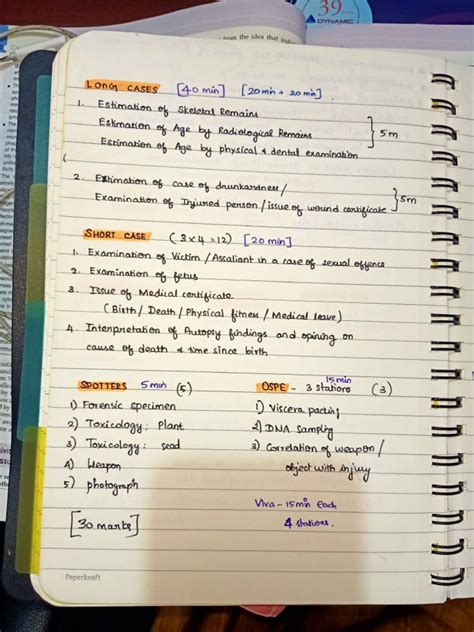 39
DYNAMIC
from the idea that
LONG CASES [40 min] [20min + 20 min]
1. Estimation of Skeletal Remains
Estimation of Age by Radiological Remains
Estimation of Age by physical & dental examination
} 5m
2. Estimation of case of drunkardness /
Examination of Injured person / issue of wound certificate
} 5m
SHORT CASE (3x4=12) [20 min]
1. Examination of Victim / Assaliant in a case of sexual offence
2. Examination of fetus
3. Issue of Medical certificate
(Birth / Death / Physical fitness / Medical leave)
4. Interpretation of Autopsy findings and opining on
cause of death & time since birth
SPOTTERS 5min (5)
1) Forensic specimen
2) Toxicology: Plant
3) Toxicology: seed
4) Weapon
5) photograph
[30 marks]
15min
OSPE - 3 stations (3)
1) Viscera packing
2) DNA Sampling
3) Correlation of weapon /
object with injury
Viva - 15min each
4 stations.
Paperkraft